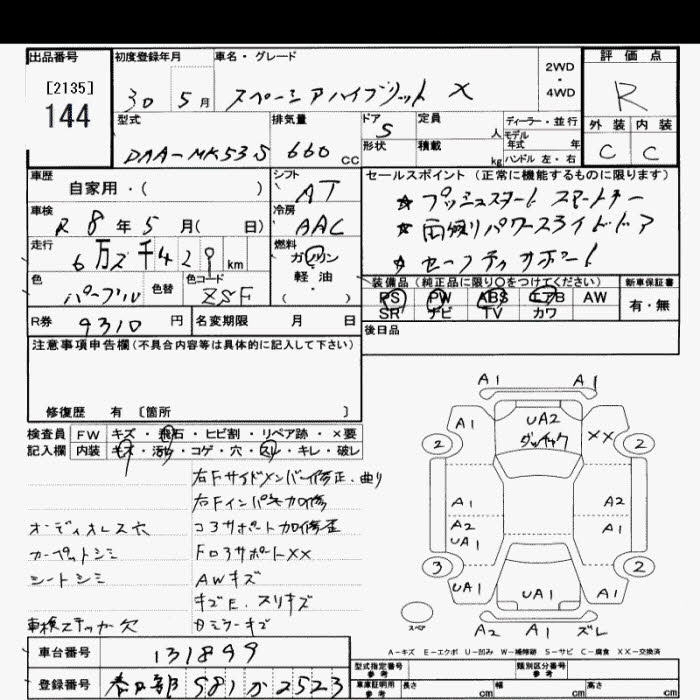 出品番号
[2135]
144
初度登録年月
30 5月
車名・グレード
スペーシアハイブリット X
2WD
・
4WD
評価点
R
外装 内装
C C
型式
DAA-MK53S
排気量
660 CC
ドア
5
形状
定員
人
積載
kg
ディーラー・並行
モデル
年式 年
ハンドル 左・右
車歴
自家用・( )
シフト
AT
車検
R 8年 5月( 日)
冷房
AAC
走行
6万 2千 4 2 9 km
燃料
ガソリン
・
軽・油
( )
色
パープル
色替
色コード
ZSF
セールスポイント (正常に機能するものに限ります)
★プッシュスタート スマートキー
★両側パワースライドドア
★セーフティサポート
装備品(純正品に限り○をつけてください)
PS PW ABS エアB AW
SR ナビ TV カワ
新車保証書
有・無
R券
9310 円
名変期限 月 日
後日品
注意事項申告欄(不具合内容等は具体的に記入して下さい)
修復歴 有 〔箇所 〕
検査員
記入欄
FW キズ・飛石・ヒビ割・リペア跡・×要
内装 キズ・汚れ・コゲ・穴・スレ・キレ・破レ
右Fサイドメンバー修正、曲り
右Fインパネ加修
オーディオレス穴
コアサポート加修歪
カーペットシミ
Fロアサポート××
シートシミ
AWキズ
キズE、スリキズ
車検ステッカー欠
Dミラーキズ
A1 A1
A1 UA2 ××
ダッチャク
2 2
A1 A2
A2 A1
UA1
3 2
UA1 UA1 A1
スペア
A2 A1 ズレ
A-キズ E-エクボ U-凹み W-補修跡 S-サビ C-腐食 XX-交換済
車台番号
131899
登録番号
春日部 581 か 2523
型式指定番号
参考
類別区分番号
参考
車庫証明用
参考
長さ cm 幅 cm 高さ cm